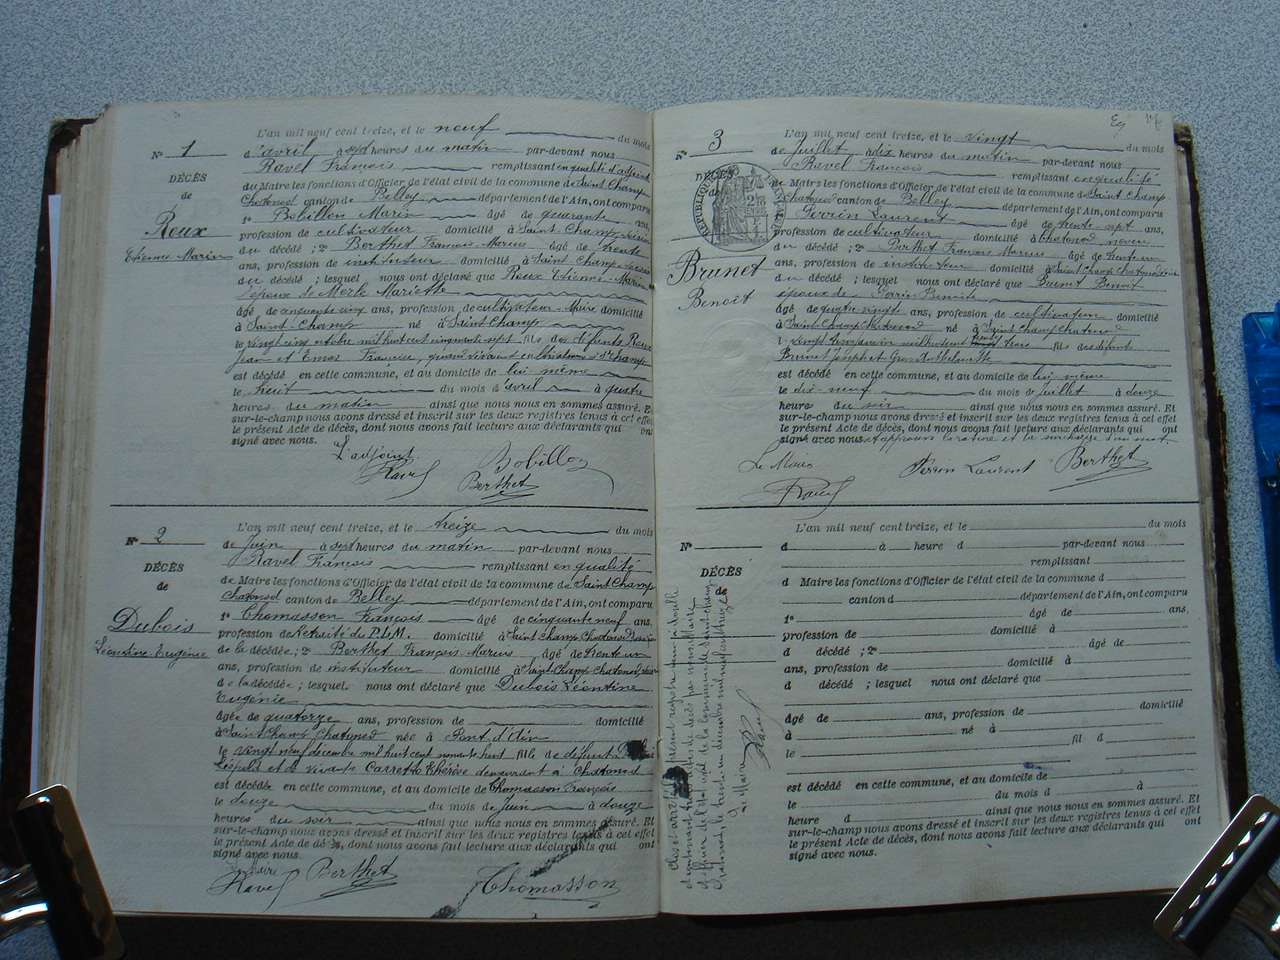 L'an mil neuf cent treize, et le neuf du mois
N° 1
d'avril à sept heures du matin par-devant nous
Ravel François remplissant en qualité d'adjoint
DÉCÈS
de
du Maire les fonctions d'Officier de l'état civil de la commune de Saint Champ
Chatonod canton de Belley département de l'Ain, ont comparu
Roux
Etienne Marin
1° Bobillon Marin âgé de quarante ans,
profession de cultivateur domicilié à Saint Champ, voisin
du décédé ; 2° Berthet François Marius âgé de trente
ans, profession de instituteur domicilié à Saint Champ, voisin
du décédé ; lesquels nous ont déclaré que Roux Etienne Marin
époux de Merle Mariette
âgé de cinquante cinq ans, profession de cultivateur, Maire domicilié
à Saint-Champ né à Saint Champ
le vingt cinq octobre mil huit cent cinquante sept fils des défunts Roux
Jean et Emos Francise, quand vivaient à St Champ
est décédé en cette commune, et au domicile de lui même
le huit du mois d'avril à quatre
heures du matin ainsi que nous nous en sommes assuré. Et
sur-le-champ nous avons dressé et inscrit sur les deux registres tenus à cet effet
le présent Acte de décès, dont nous avons fait lecture aux déclarants qui ont
signé avec nous.
L'adjoint
Ravel
Berthet
Bobillon
L'an mil neuf cent treize, et le treize du mois
N° 2
de Juin à sept heures du matin par-devant nous
Ravel François remplissant en qualité
DÉCÈS
de
de Maire les fonctions d'Officier de l'état civil de la commune de Saint Champ
Chatonod canton de Belley département de l'Ain, ont comparu
Dubois
Léontine Eugénie
1° Thomasson François âgé de cinquante neuf ans,
profession de Retraité du P.L.M. domicilié à Saint Champ Chatonod, voisin
de la décédée ; 2° Berthet François Marius, âgé de trente un
ans, profession de instituteur domicilié à Saint-Champ Chatonod, voisin
de la décédée ; lesquels nous ont déclaré que Dubois Léontine
Eugénie
âgée de quatorze ans, profession de domicilié
à Saint Champ Chatonod née à Pont d'Ain
le vingt neuf décembre mil huit cent nonante huit fille de défunt Dubois
Léopold et de vivante Carrette Thérèse demeurant à Chatonod
est décédée en cette commune, et au domicile de Thomasson François
le douze du mois de Juin à douze
heures du soir ainsi que nous nous en sommes assuré. Et
sur-le-champ nous avons dressé et inscrit sur les deux registres tenus à cet effet
le présent Acte de décès, dont nous avons fait lecture aux déclarants qui ont
signé avec nous.
Le Maire
Ravel
Berthet
Thomasson
L'an mil neuf cent treize, et le vingt du mois
N° 3
de Juillet à dix heures du matin par-devant nous
Ravel François remplissant en qualité
DÉCÈS
de
RÉPUBLIQUE FRANÇAISE
de Maire les fonctions d'Officier de l'état civil de la commune de Saint Champ
Chatonod canton de Belley département de l'Ain, ont comparu
Brunet
Benoît
1° Perrin Laurent âgé de trente-sept ans,
profession de cultivateur domicilié à Chatonod neveu
du décédé ; 2° Berthet François Marius âgé de trente un
ans, profession de instituteur domicilié à Saint Champ Chatonod, voisin
du décédé ; lesquels nous ont déclaré que Brunet Benoit
époux de Benoite
âgé de quatre vingt ans, profession de cultivateur domicilié
à Saint Champ Chatonod né à Saint Champ Chatonod
le vingt mil huit cent trente trois fils des défunts
Brunet Joseph et
est décédé en cette commune, et au domicile de lui même
le dix-neuf du mois de Juillet à douze
heure du soir ainsi que nous nous en sommes assuré. Et
sur-le-champ nous avons dressé et inscrit sur les deux registres tenus à cet effet
le présent Acte de décès, dont nous avons fait lecture aux déclarants qui ont
signé avec nous. et approuvé la rature et la surcharge d'un mot.
Le Maire
Ravel
Perrin Laurent
Berthet
L'an mil neuf cent treize, et le du mois
N°
d à heure d par-devant nous
remplissant
DÉCÈS
de
d Maire les fonctions d'Officier de l'état civil de la commune d
canton d département de l'Ain, ont comparu
1° âgé de ans,
profession de domicilié à
d décédé ; 2° âgé de
ans, profession de domicilié à
d décédé ; lesquels nous ont déclaré que
âgé de ans, profession de domicilié
à né à
le fil d
est décédé en cette commune, et au domicile de
le du mois d à
heure d ainsi que nous nous en sommes assuré. Et
sur-le-champ nous avons dressé et inscrit sur les deux registres tenus à cet effet
le présent Acte de décès, dont nous avons fait lecture aux déclarants qui ont
signé avec nous.
Clos et arrêté le présent registre
contenant trois actes de décès par nous Maire
officier de l'état civil de la commune de Saint-Champ
Chatonod, le trente un décembre mil neuf cent treize
Le Maire
Ravel